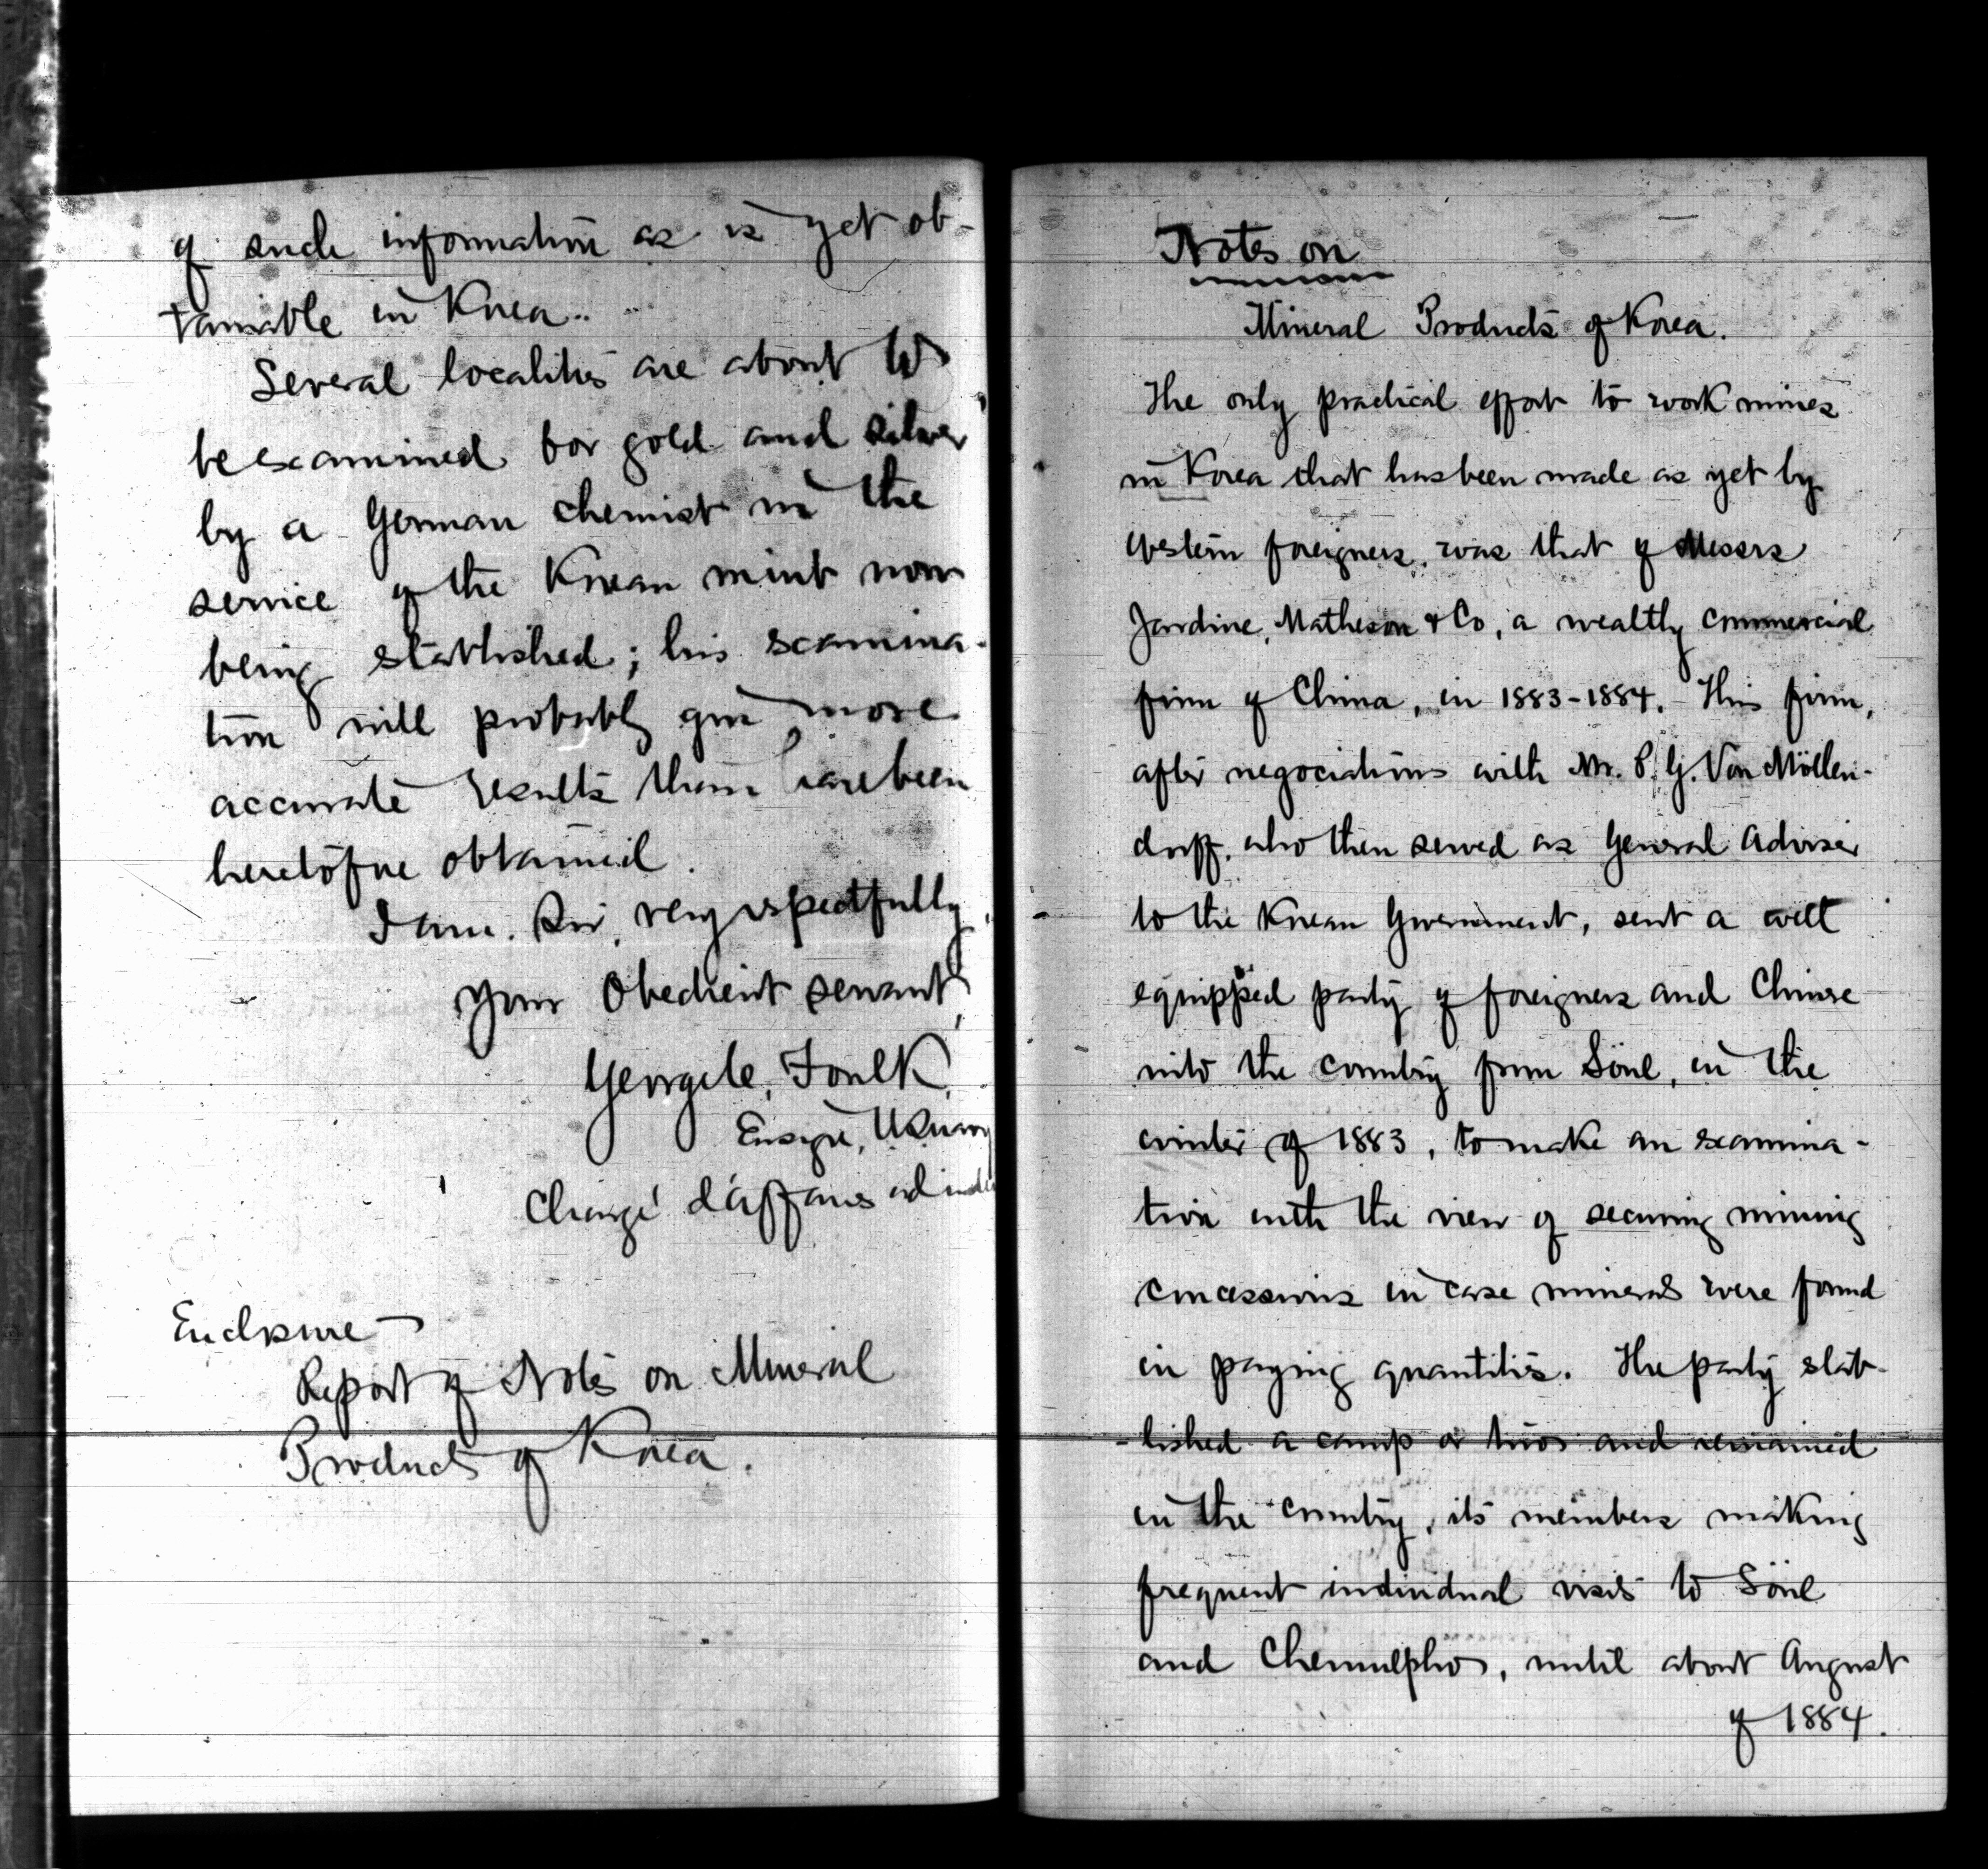 of such information as is yet ob-
tainable in Korea.
Several localities are about to
be examined for gold and silver
by a German chemist in the
service of the Korean mint now
being established; his examina-
tion will probably give more
accurate results than have been
heretofore obtained.
I am, Sir, very respectfully,
Your Obedient servant,
George C. Foulk,
Ensign, U.S. Navy
Chargé d'affaires ad
Enclosure
Report of Notes on Mineral
Products of Korea.
Notes on
Mineral Products of Korea.
The only practical effort to work mines
in Korea that has been made as yet by
Western foreigners, was that of Messrs
Jardine, Matheson & Co, a wealthy commercial
firm of China, in 1883-1884. This firm,
after negociations with Mr. P. G. Von Möllen-
dorff, who then served as General Adviser
to the Korean Government, sent a well
equipped party of foreigners and Chinese
into the country from Söul, in the
winter of 1883, to make an examina-
tion with the view of securing mining
concessions in case minerals were found
in paying quantities. The party estab-
-lished a camp or two and remained
in the country, its members making
frequent individual visits to Söul
and Chemulpho, until about August
of 1884.